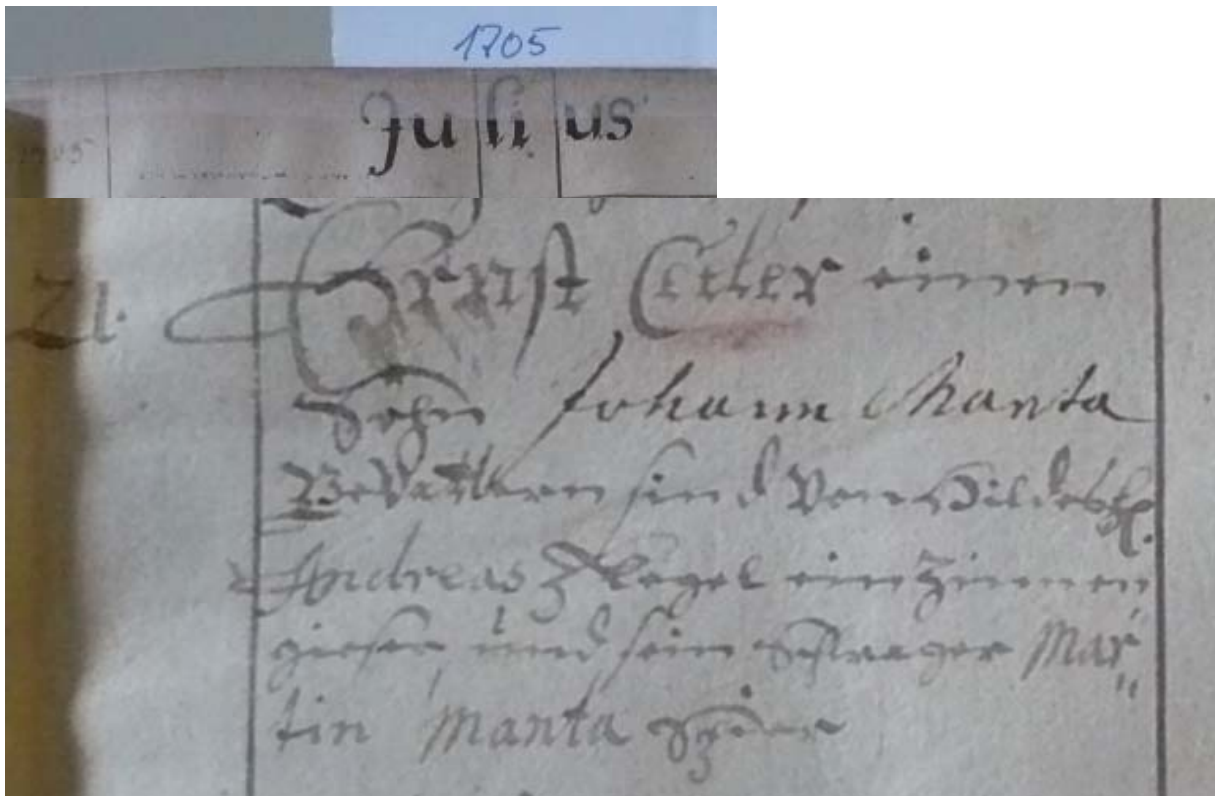 1705
Julius
21. Ernst einen
Sohn Johann Manta
Gevattern sind von Hildesh.
Andreas Flegel ein Zinnen
gieser, und sein Schwager Mar„
tin Manta